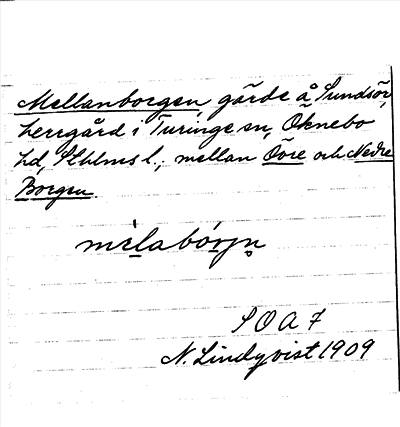 Mellanborgen, gärde å Sundsör,
herrgård i Turinge sn, Öknebo
hd, Sthlms l.; mellan Övre och Nedre
Borgen.
mèlabórjn̥
SOA 7
N. Lindqvist 1909